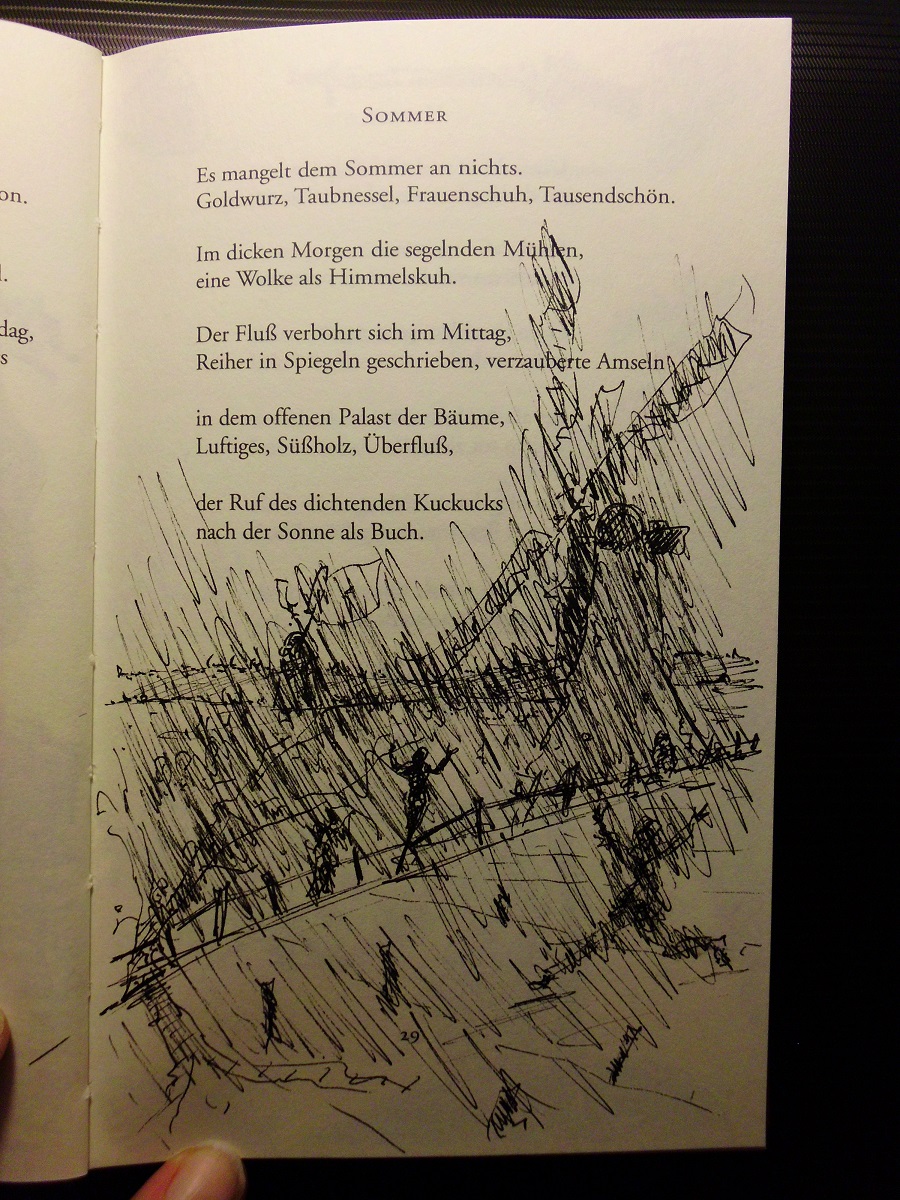 on.
l.
dag,
s
SOMMER
Es mangelt dem Sommer an nichts.
Goldwurz, Taubnessel, Frauenschuh, Tausendschön.
Im dicken Morgen die segelnden Mühlen,
eine Wolke als Himmelskuh.
Der Fluß verbohrt sich im Mittag,
Reiher in Spiegeln geschrieben, verzauberte Amseln
in dem offenen Palast der Bäume,
Luftiges, Süßholz, Überfluß,
der Ruf des dichtenden Kuckucks
nach der Sonne als Buch.
29